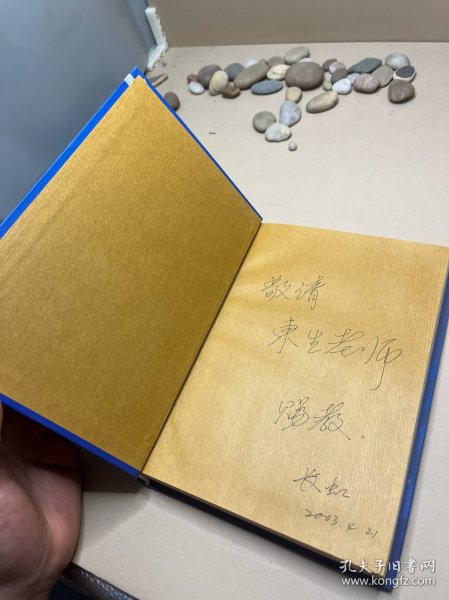 敬请
東生老师
赐教.
长虹
2003.4.21.
孔夫子旧书网
www.kongfz.com